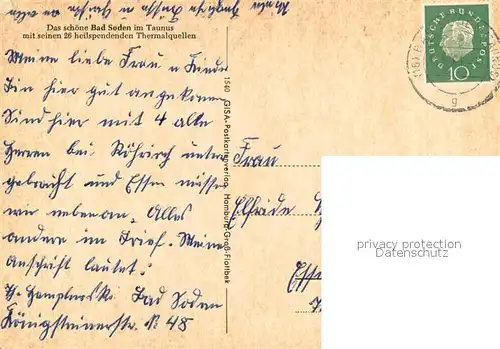 Das schöne Bad Soden im Taunus
mit seinen 26 heilspendenden Thermalquellen
Meine liebe Frau u Kinder
Bin hier gut angekom
Sind hier mit 4 alle
Herren bei Röhrich unter
gebracht und Essen müssen
wir nebenan. Alles
andere im Brief. Meine
Anschrift lautet:
Bad Soden
Königsteinerstr. N 48
1540 GISA-Postkartenverlag, Hamburg-Groß-Flottbek
DEUTSCHE BUNDESPOST
10
g
Frau
Elfriede
Essen
privacy protection
Datenschutz